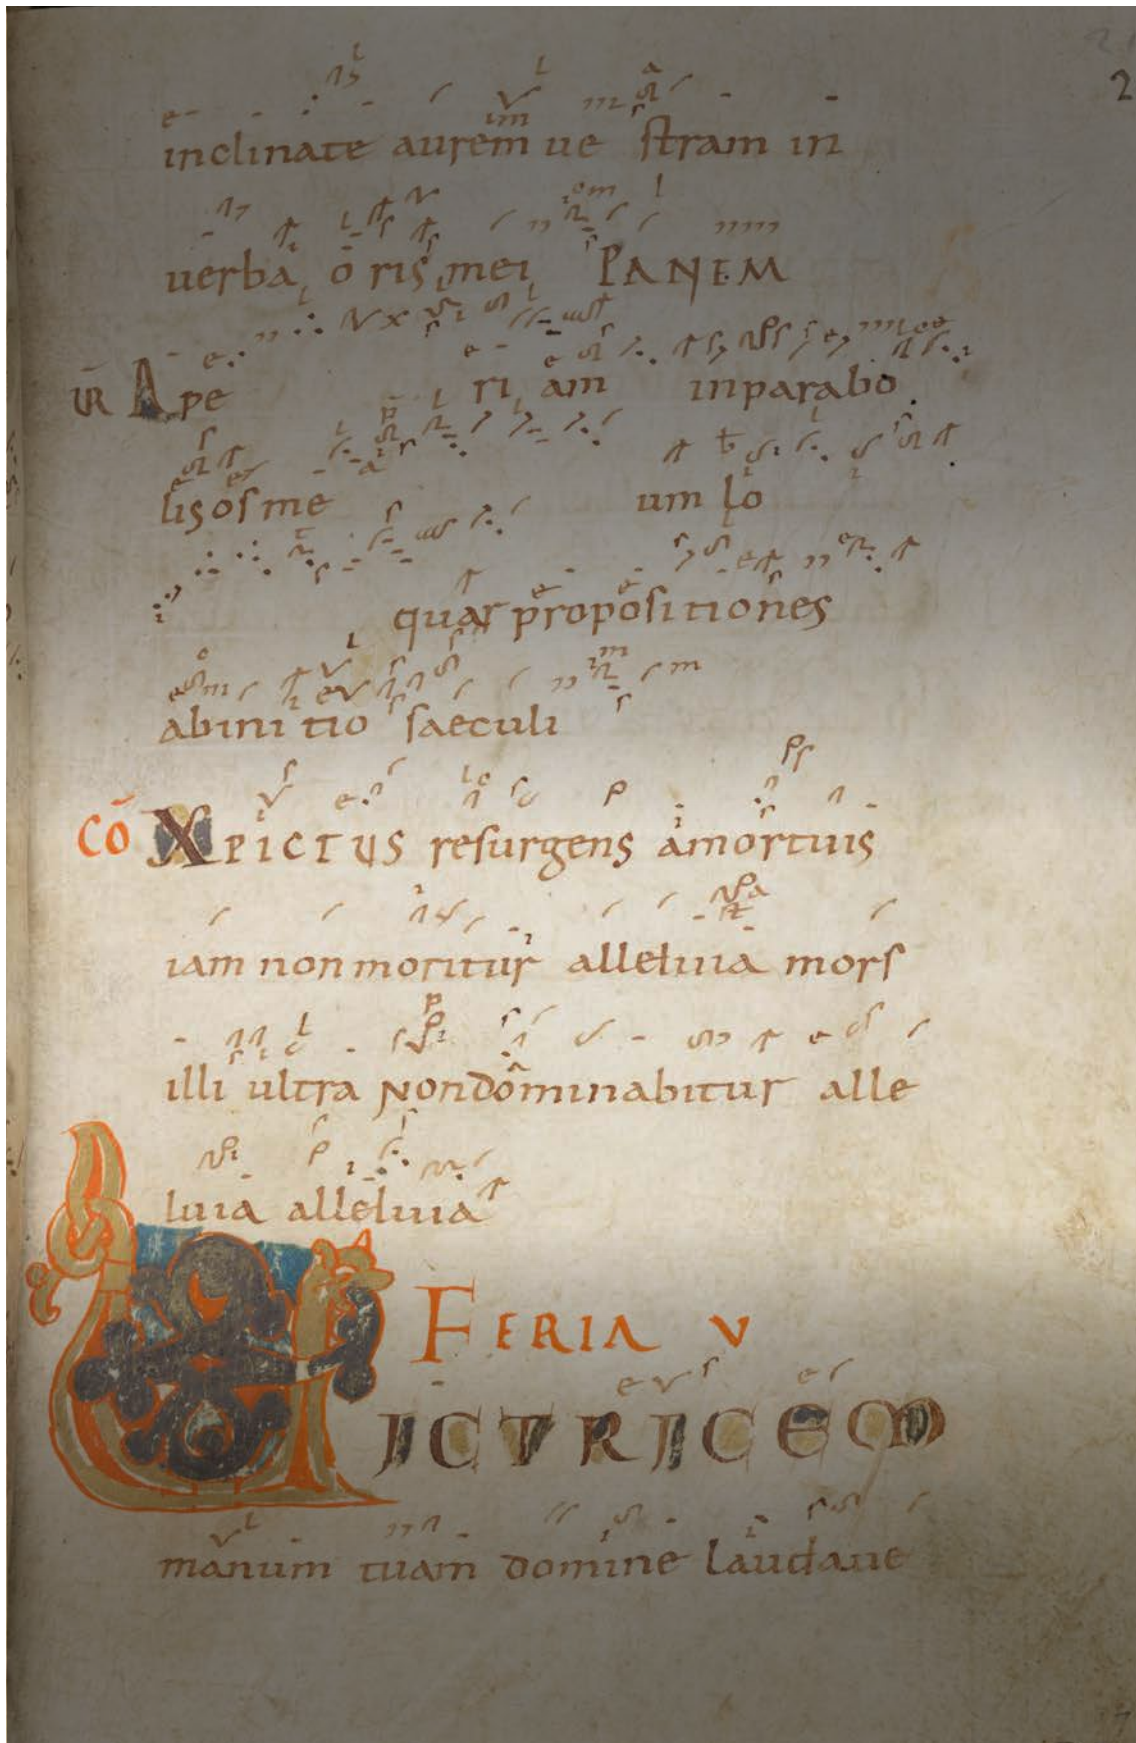 2
inclinate aurem ue stram in
uerba oris mei PANEM
VR Ape ri am in parabo
lis os me um lo
quar propositiones
ab initio saeculi
CŌ XPICTUS resurgens a mortuis
iam non moritur alleluia mors
illi ultra Non dominabitur alle
luia alleluia
FERIA V
VICTRICEM
manum tuam domine laudaue